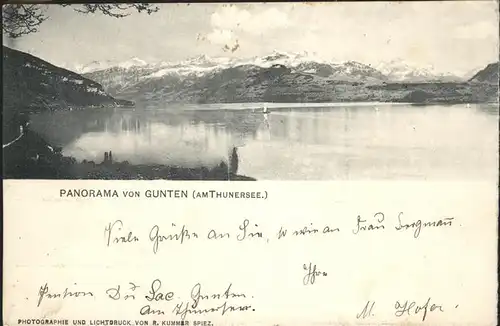 PANORAMA VON GUNTEN (AM THUNERSEE.)
Viele Grüße an Sie, so wie an Frau Bergmann.
Ihre
Pension Du Lac, Gunten
am Thunersee.
M. Hofer.
PHOTOGRAPHIE UND LICHTDRUCK VON R. KUMMER SPIEZ.